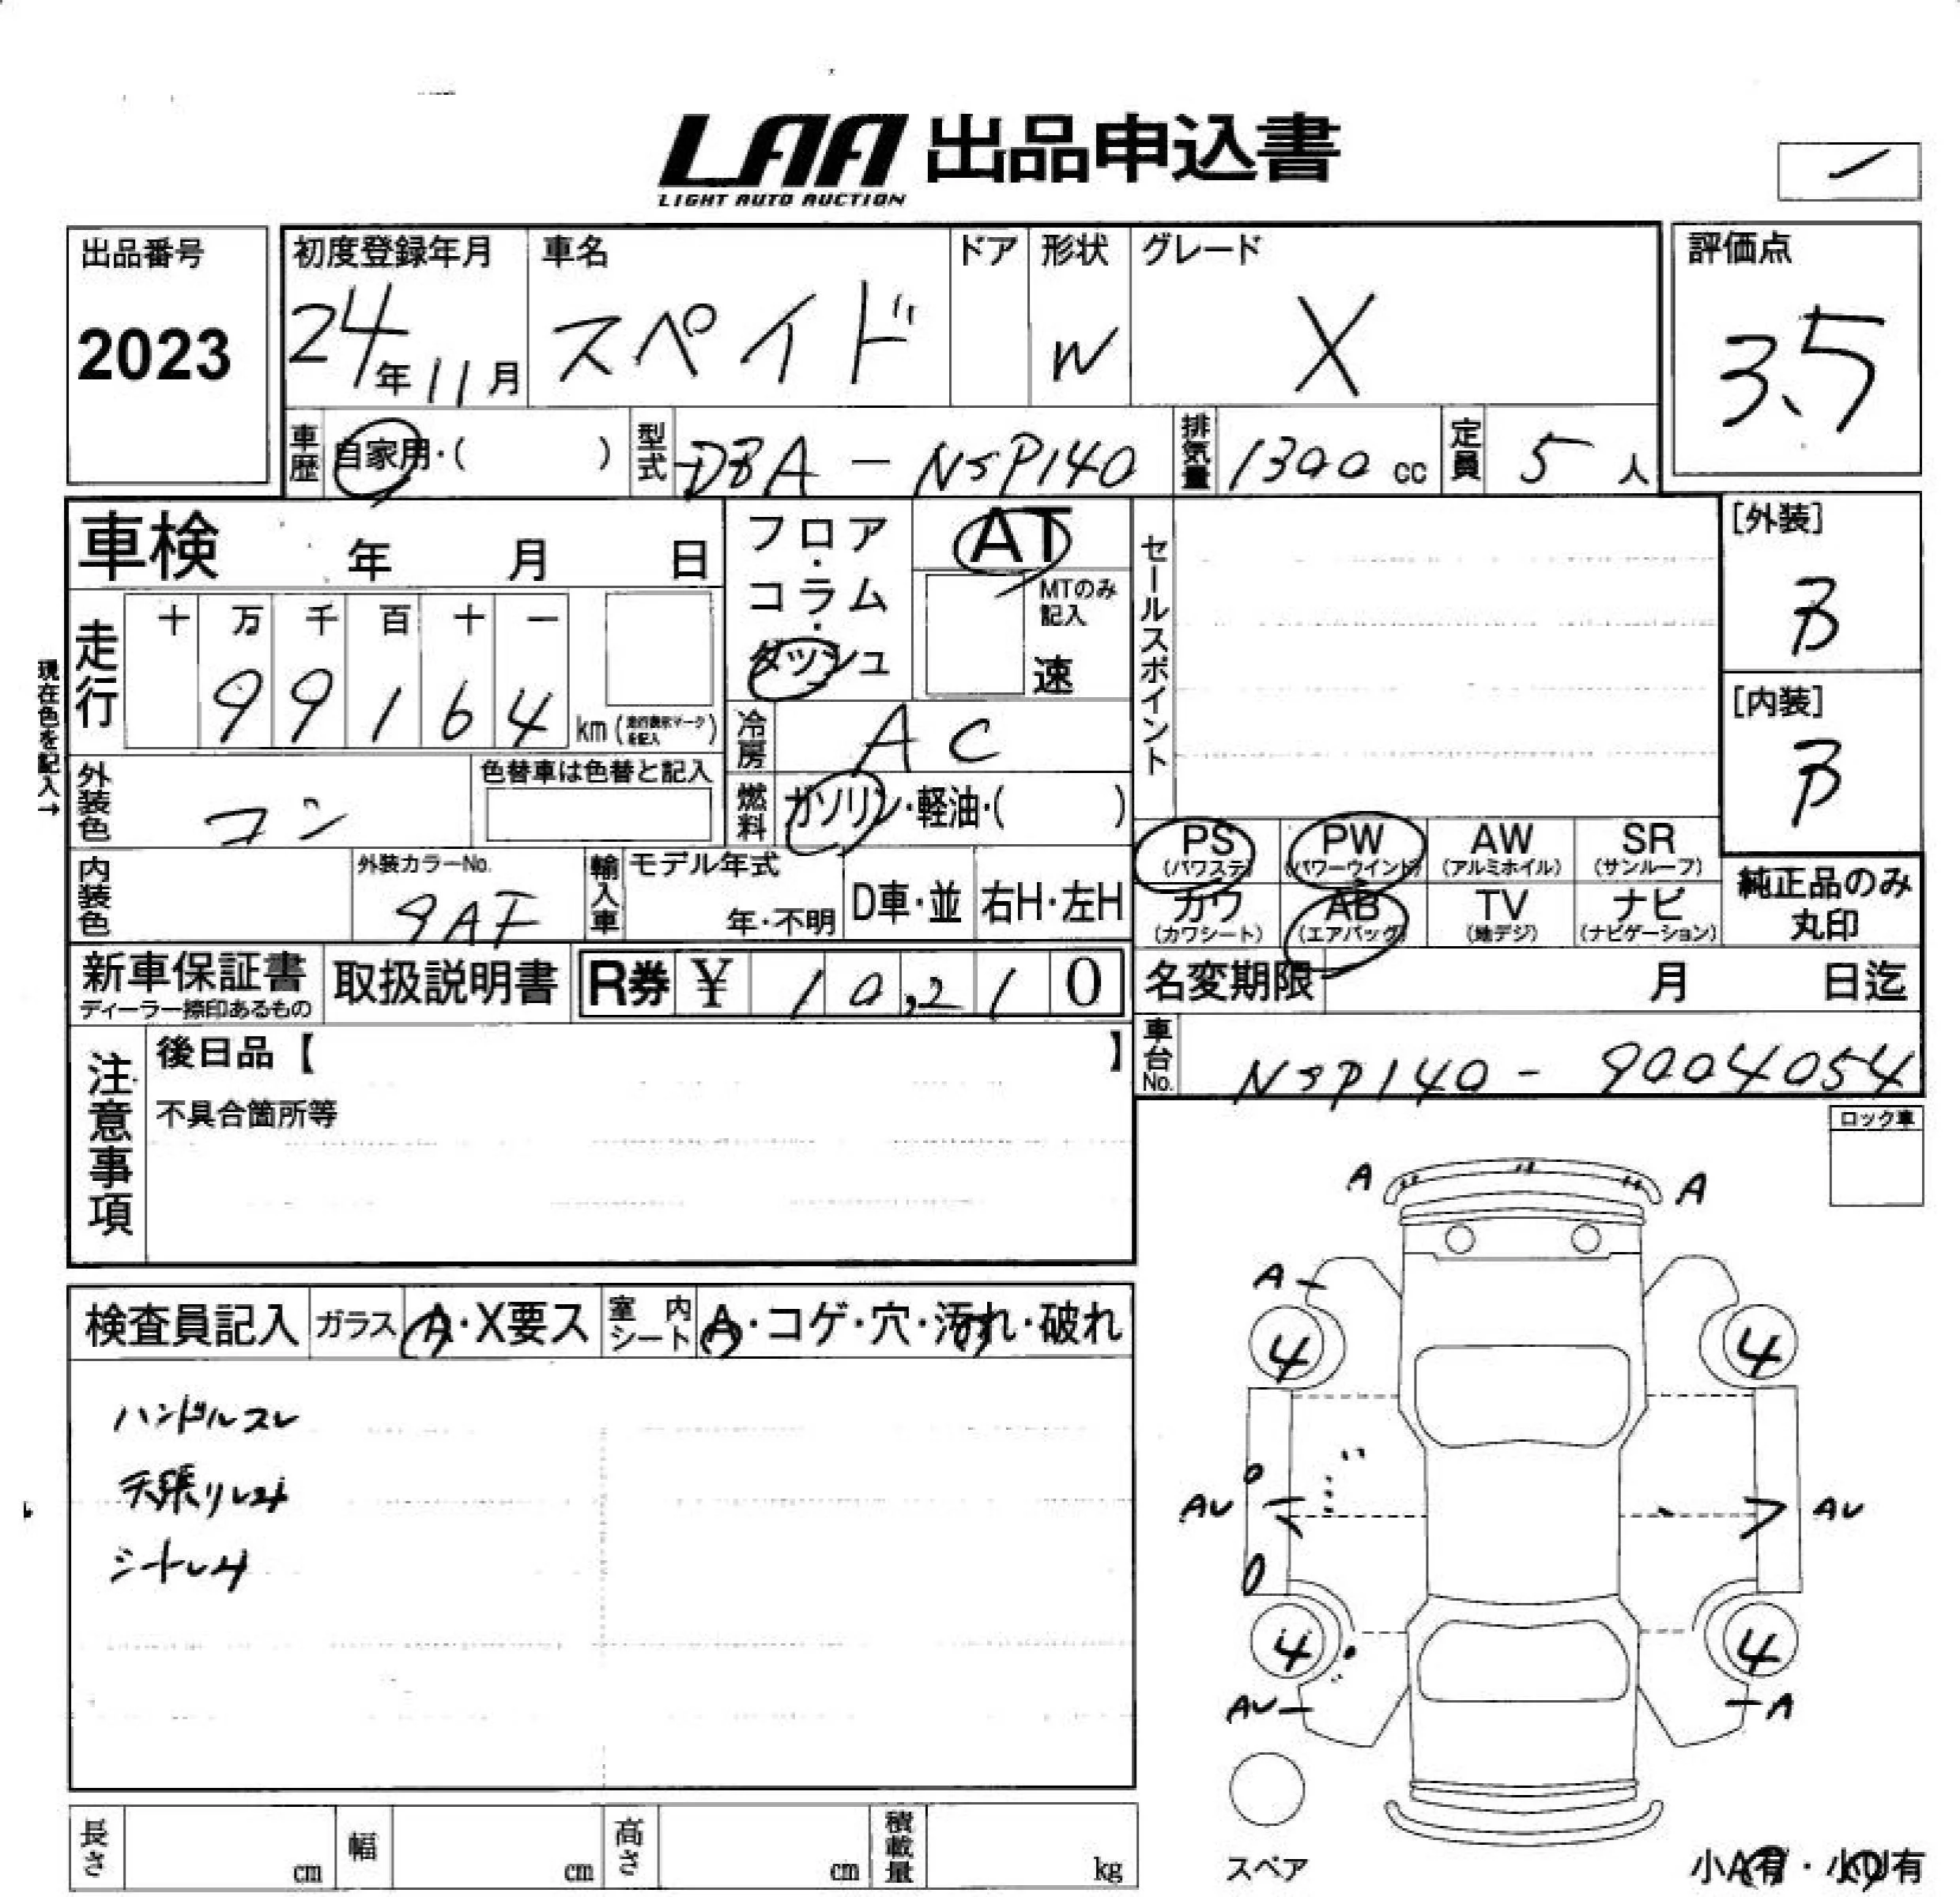 LAA 出品申込書
LIGHT AUTO AUCTION
出品番号
2023
初度登録年月
24年11月
車名
スペイド
ドア
形状
W
グレード
X
評価点
3.5
車歴
自家用・( )
型式
DBA-NSP140
排気量
1300 cc
定員
5 人
車検 年 月 日
フロア・コラム・ダッシュ
AT
MTのみ記入
速
セールスポイント
[外装]
B
[内装]
B
現在色を記入→
走行
十 万 千 百 十 一
9 9 1 6 4 km (走行表示マークを記入)
冷房
AC
外装色
コン
色替車は色替と記入
燃料
ガソリン・軽油・( )
PS
(パワステ)
PW
(パワーウインド)
AW
(アルミホイル)
SR
(サンルーフ)
カワ
(カワシート)
AB
(エアバッグ)
TV
(地デジ)
ナビ
(ナビゲーション)
純正品のみ
丸印
内装色
外装カラーNo.
9AF
輸入車
モデル年式
年・不明
D車・並
右H・左H
新車保証書
ディーラー捺印あるもの
取扱説明書
R券 ¥ 10,210
名変期限 月 日迄
車台No.
NSP140-9004054
注意事項
後日品【 】
不具合箇所等
ロック車
検査員記入
ガラス
A・X要ス
室内シート
A・コゲ・穴・汚れ・破れ
ハンドルスレ
天張りシミ
シートシミ
A A
A
4 4
AU AU
4 4
AU A
スペア
小A有・小U有
長さ cm
幅 cm
高さ cm
積載量 kg